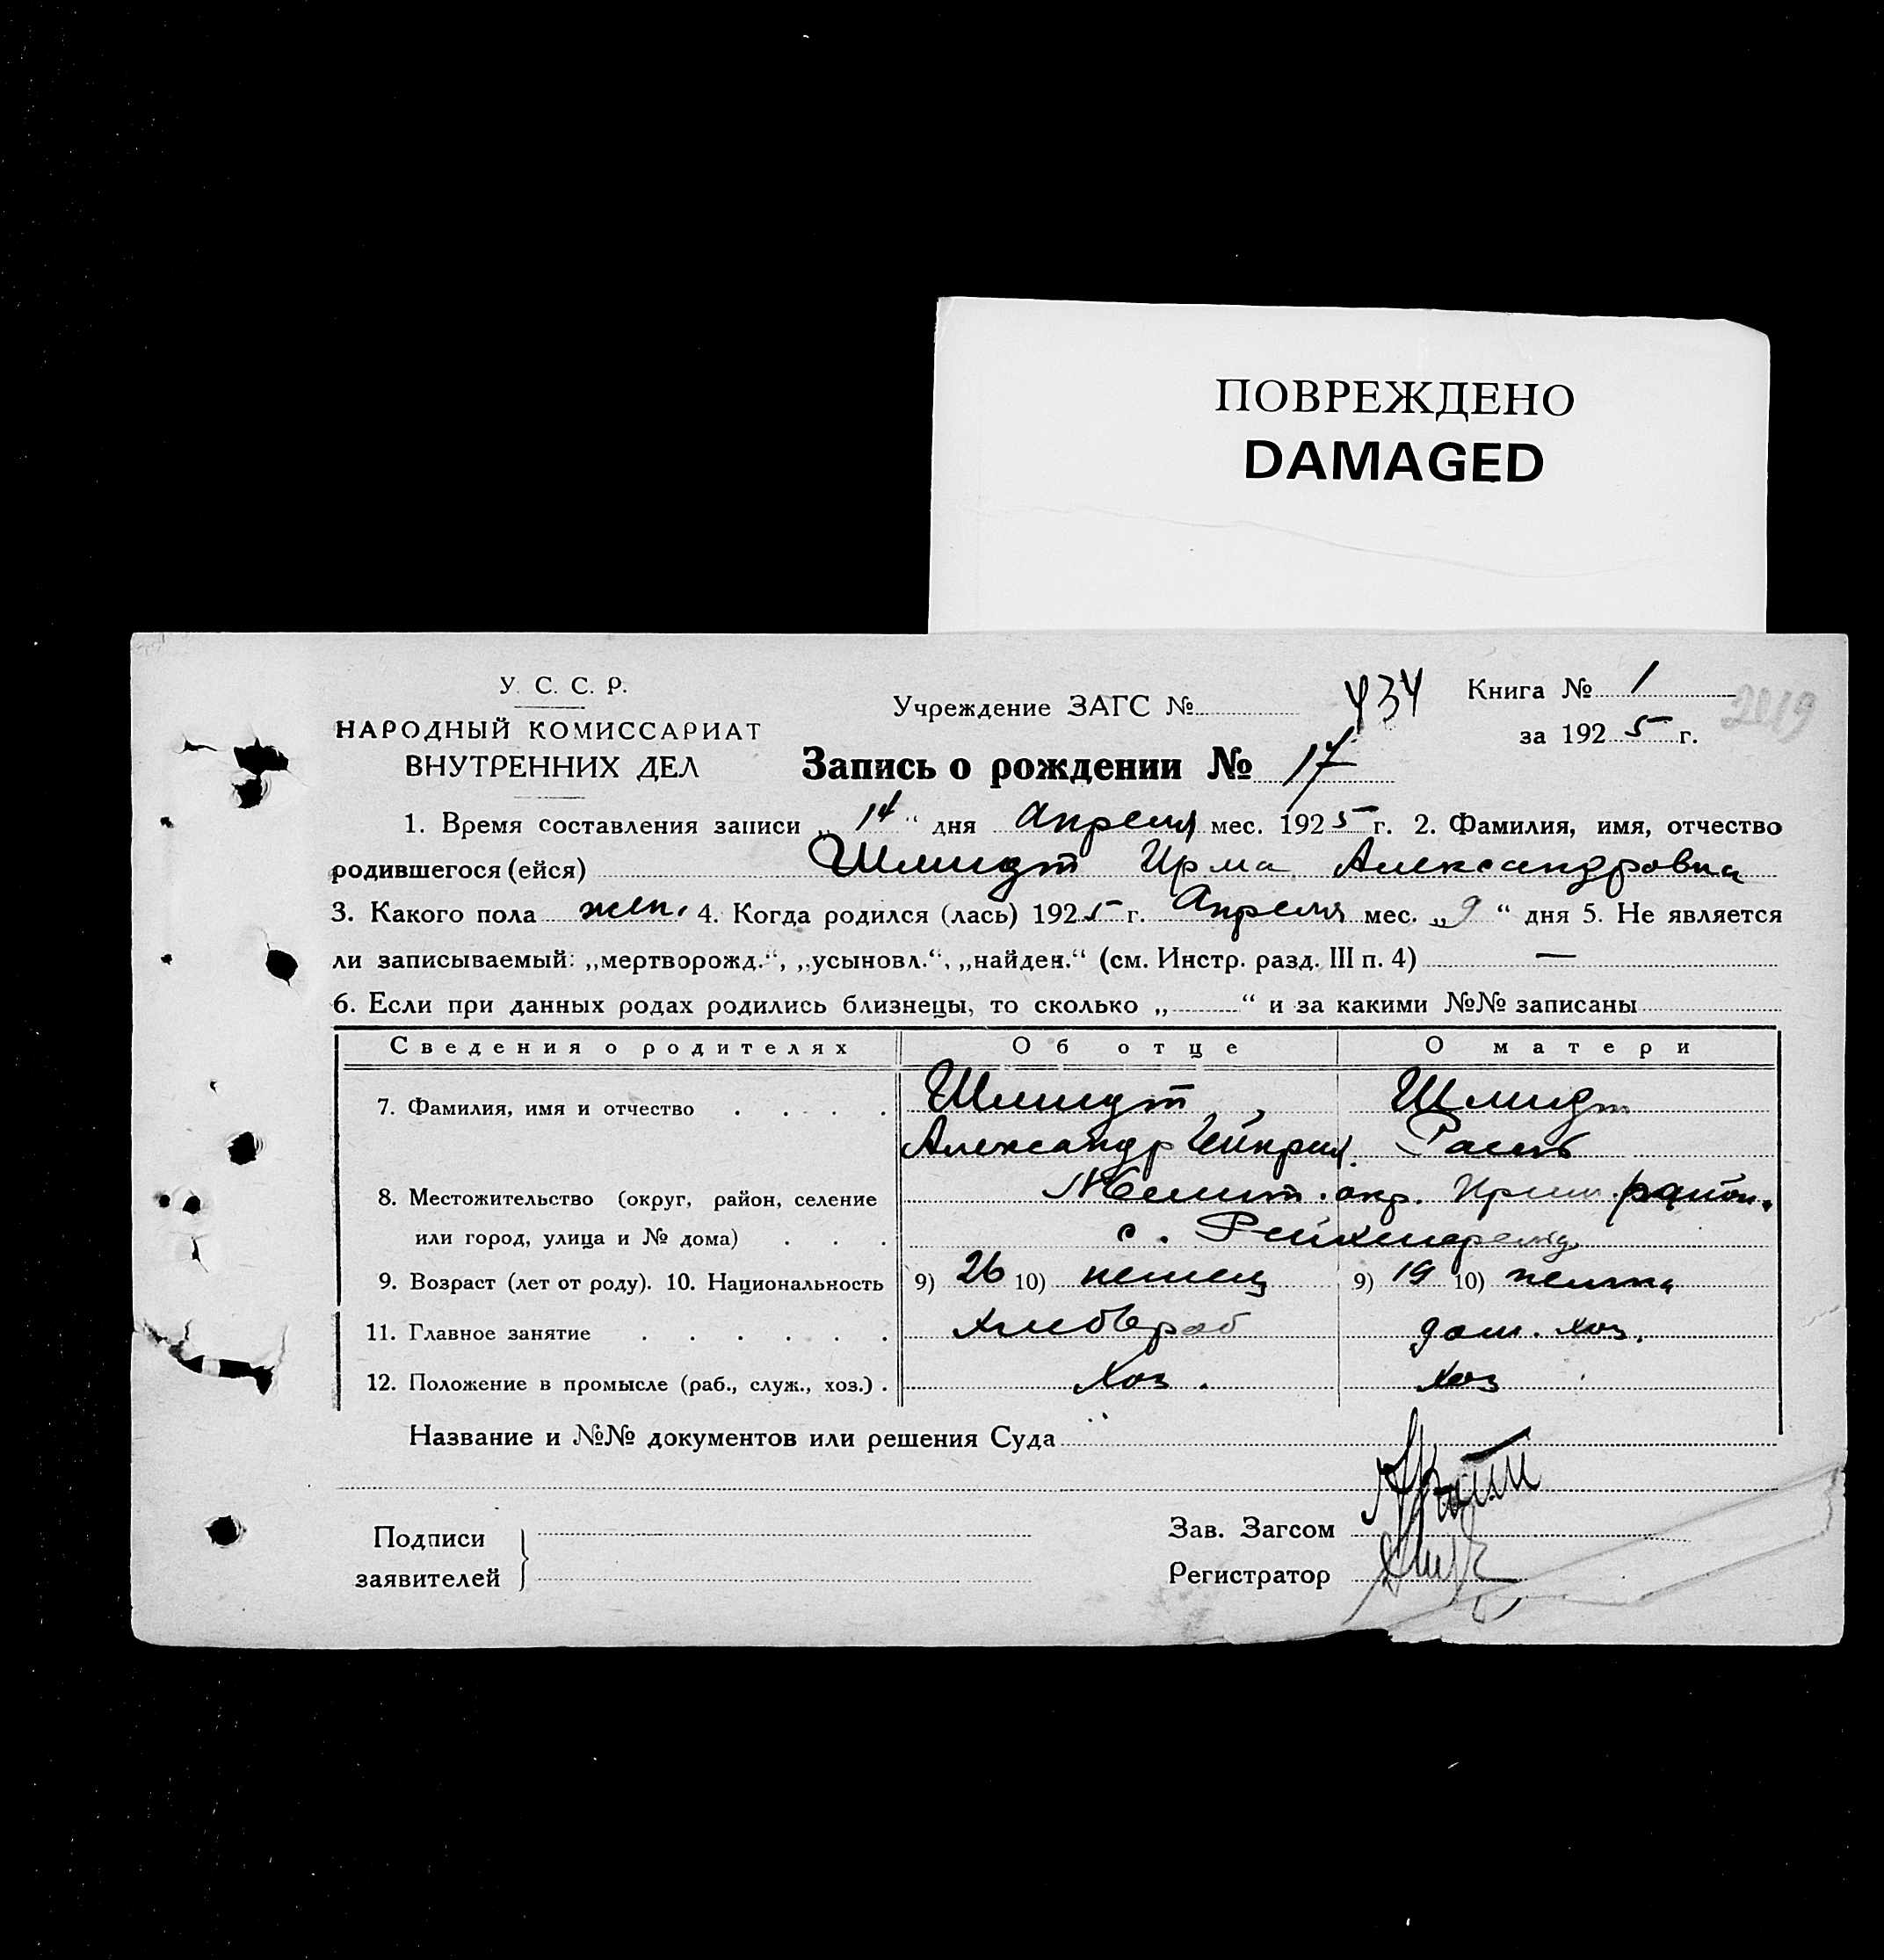 ПОВРЕЖДЕНО
DAMAGED
У. С. С. Р.
НАРОДНЫЙ КОМИССАРИАТ
ВНУТРЕННИХ ДЕЛ
Учреждение ЗАГС № 434
Книга № 1
2019
за 1925 г.
Запись о рождении № 17
1. Время составления записи „14“ дня Апреля мес. 1925 г. 2. Фамилия, имя, отчество
родившегося (ейся) Шмидт Ирма Александровна
3. Какого пола жен. 4. Когда родился (лась) 1925 г. Апреля мес. „9“ дня 5. Не является
ли записываемый: „мертворожд.“, „усыновл.“, „найден.“ (см. Инстр. разд. III п. 4) —
6. Если при данных родах родились близнецы, то сколько „ “ и за какими №№ записаны
Сведения о родителях Об отце О матери
7. Фамилия, имя и отчество . . . . Шмидт Шмидт
Александр Гейнрих.
8. Местожительство (округ, район, селение Мелит. окр. Приш. район.
или город, улица и № дома) . . . с. Рейхенфельд
9. Возраст (лет от роду). 10. Национальность 9) 26 10) немец 9) 19 10) немка
11. Главное занятие . . . . . . хлебороб дом. хоз.
12. Положение в промысле (раб., служ., хоз.) . хоз. хоз
Название и №№ документов или решения Суда
Подписи
заявителей
Зав. Загсом
Регистратор